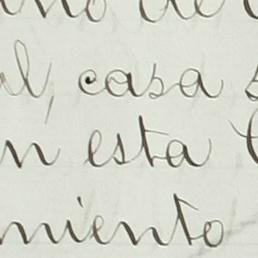 de
l, casa
n esta
miento